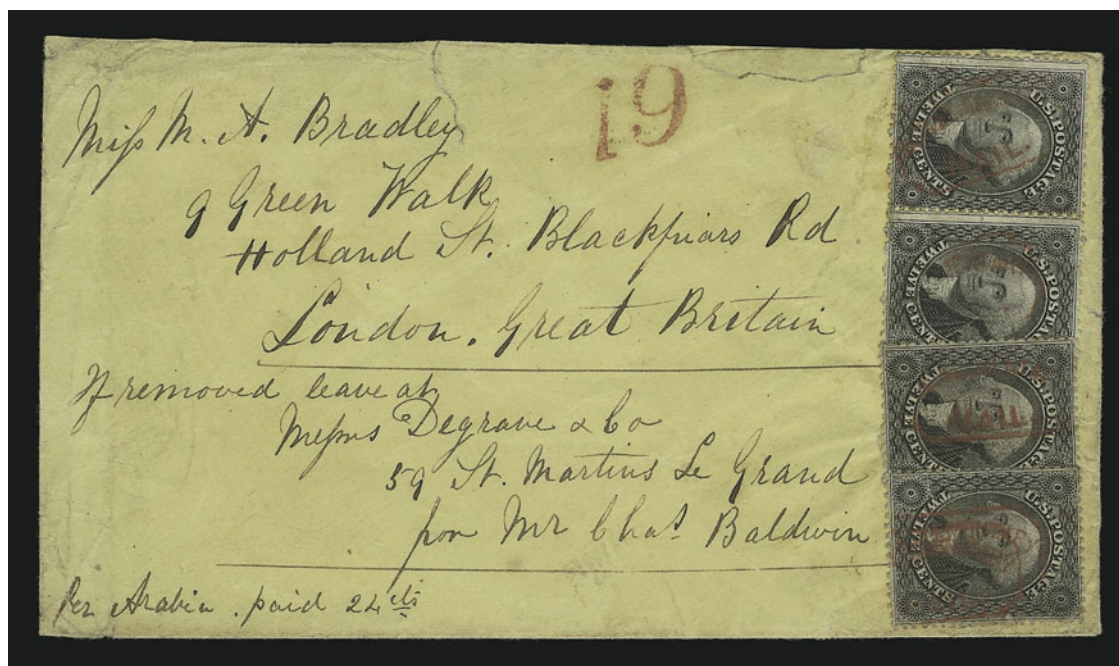 19
Miss M. A. Bradley
9 Green Walk
Holland St. Blackfriars Rd
London. Great Britain
If removed leave at
Messrs Degrave & Co
59 St. Martins Le Grand
for Mr Chas Baldwin
Per Arabia. paid 24 cts
U.S. POSTAGE.
TWELVE CENTS
U.S. POSTA
TWELVE CENT
U.S. POSTAGE
TWELVE CENT
U.S. POSTAGE.
TWELVE CENTS